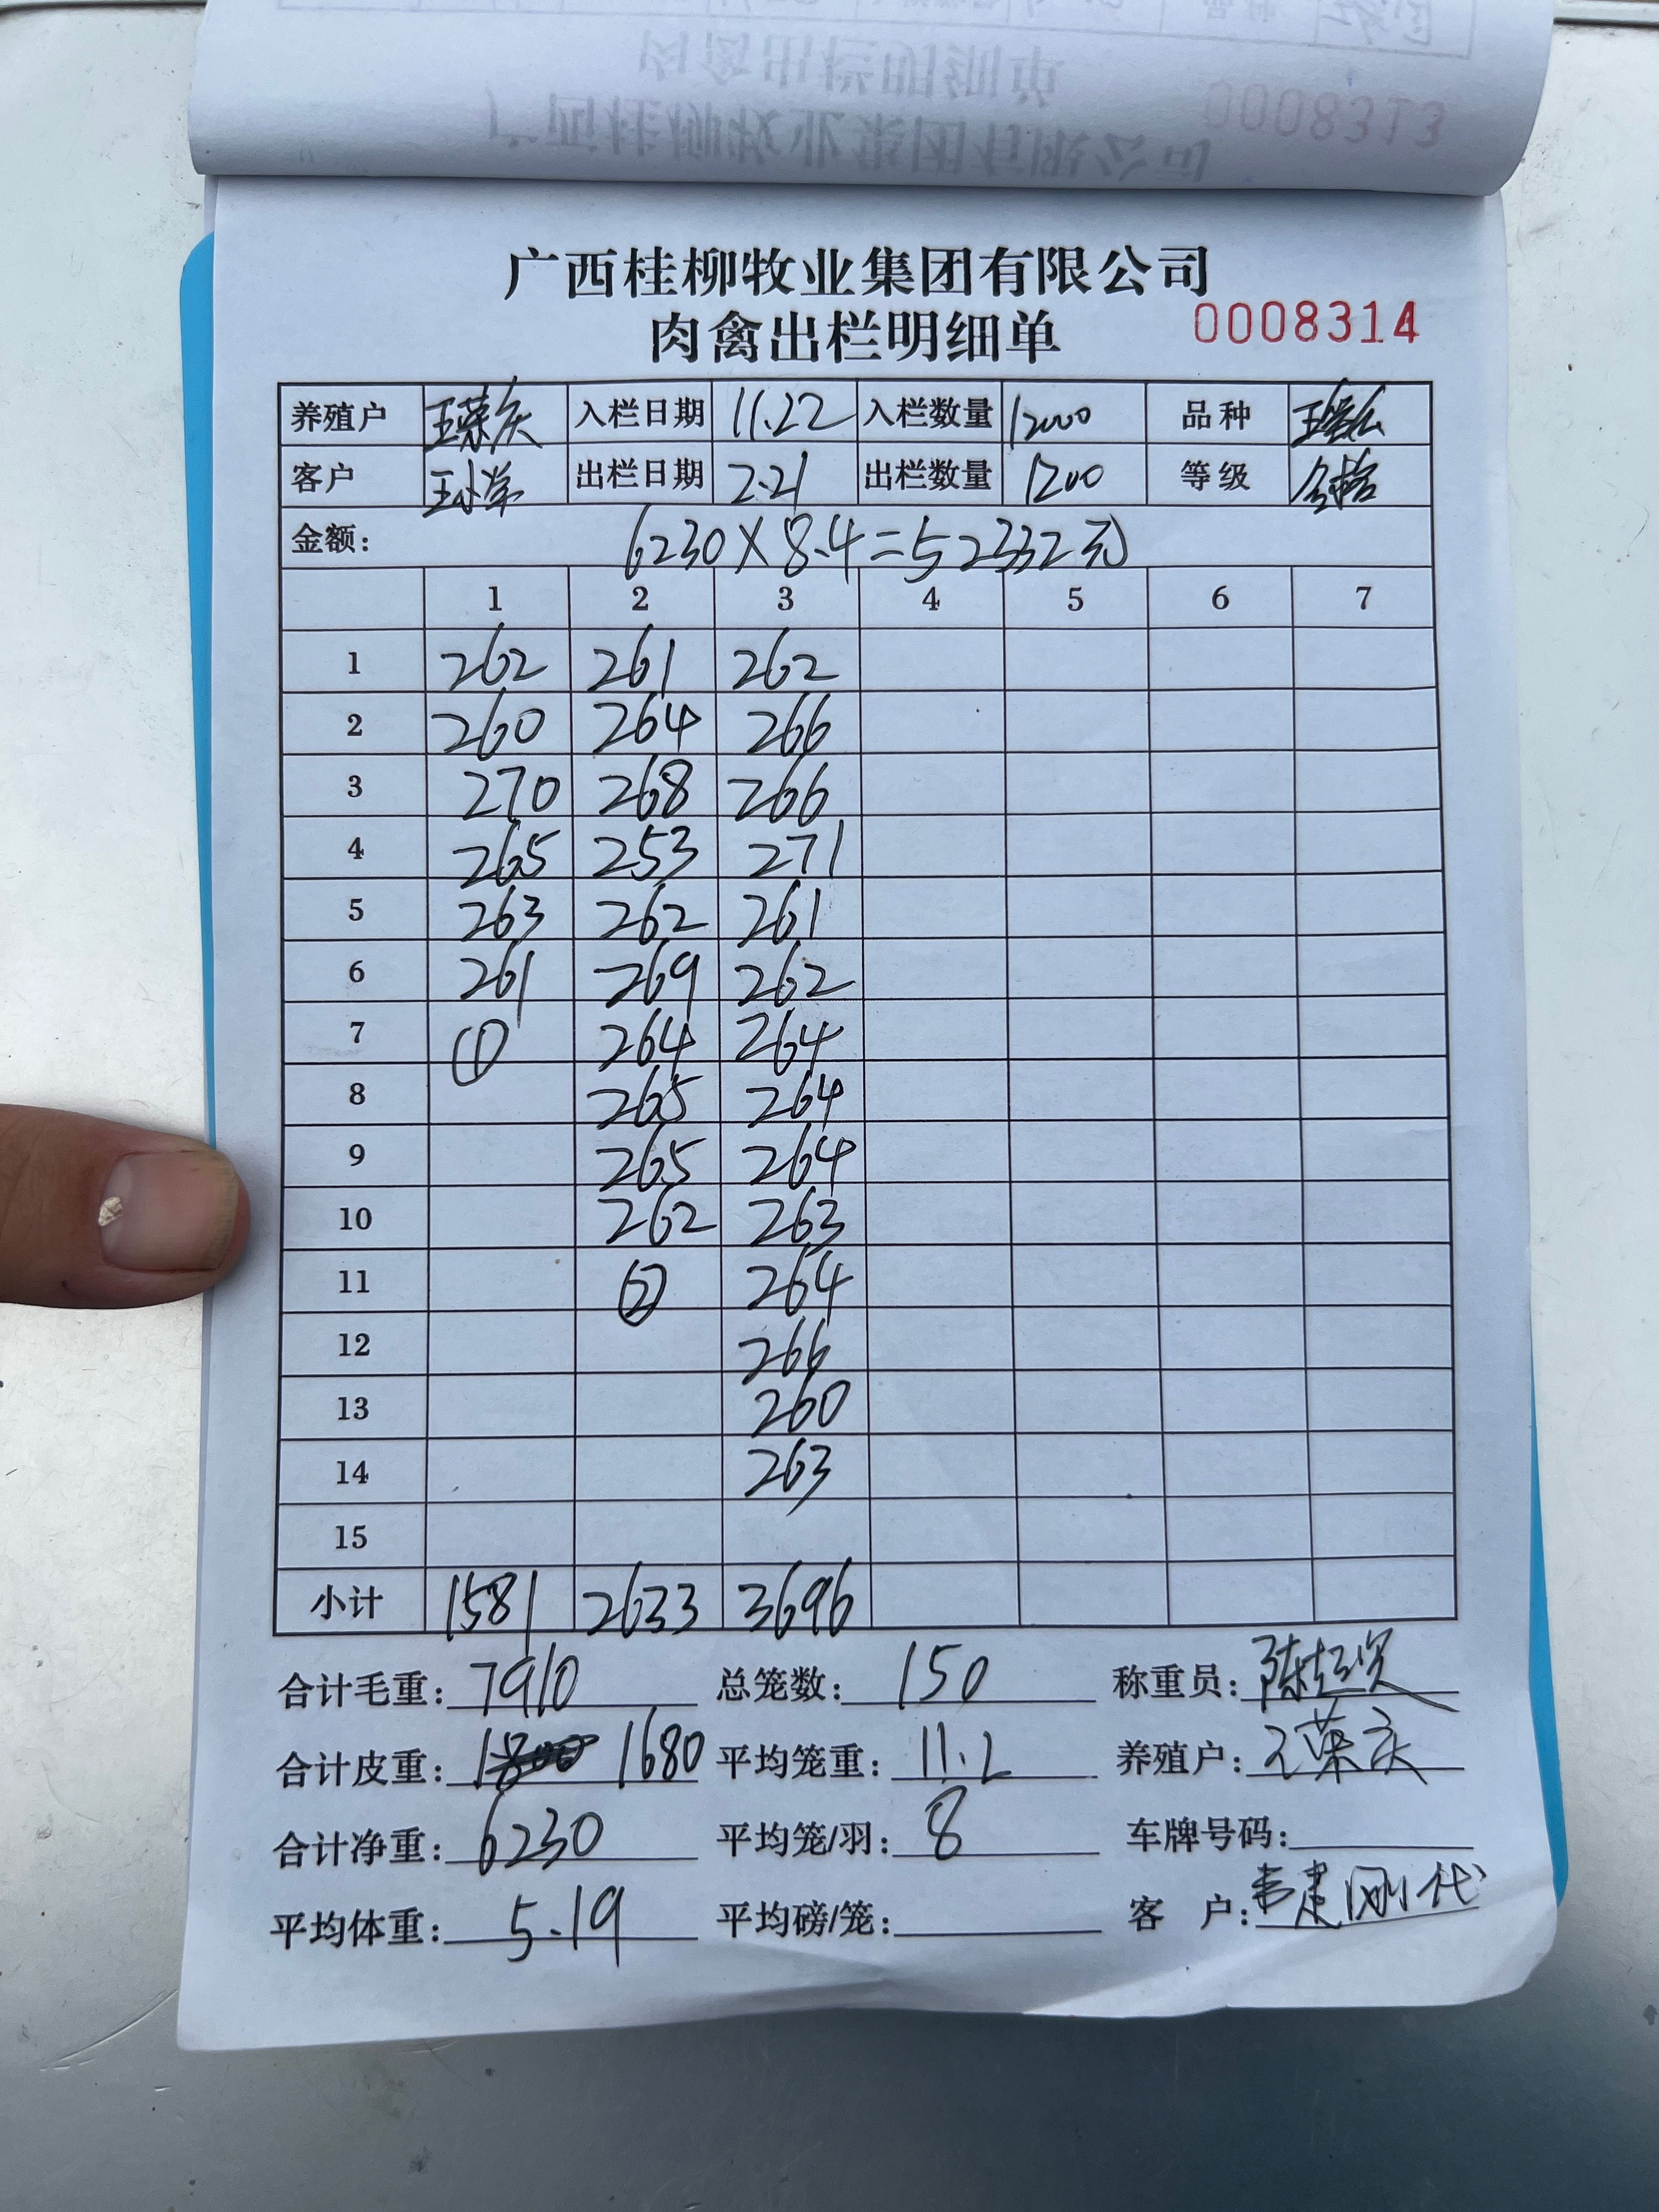 0008313
广西桂柳牧业集团有限公司
肉禽出栏明细单
0008314
养殖户 王荣庆 入栏日期 11.22 入栏数量 12000 品种
客户 出栏日期 2.21 出栏数量 1200 等级 合格
金额: 6230×8.4=52332元
1 2 3 4 5 6 7
1 262 261 262
2 260 264 266
3 270 268 266
4 265 253 271
5 263 262 261
6 261 269 262
7 ① 264 264
8 265 264
9 265 264
10 262 263
11 ② 264
12 266
13 260
14 263
15
小计 1581 2633 3696
合计毛重: 7910 总笼数: 150 称重员:
合计皮重: 1680 平均笼重: 11.2 养殖户: 王荣庆
合计净重: 6230 平均笼/羽: 8 车牌号码:
平均体重: 5.19 平均磅/笼: 客 户: 韦建刚代